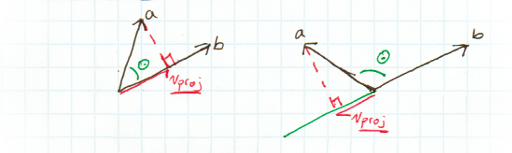 a
b
θ
Vproj
a
b
θ
Vproj